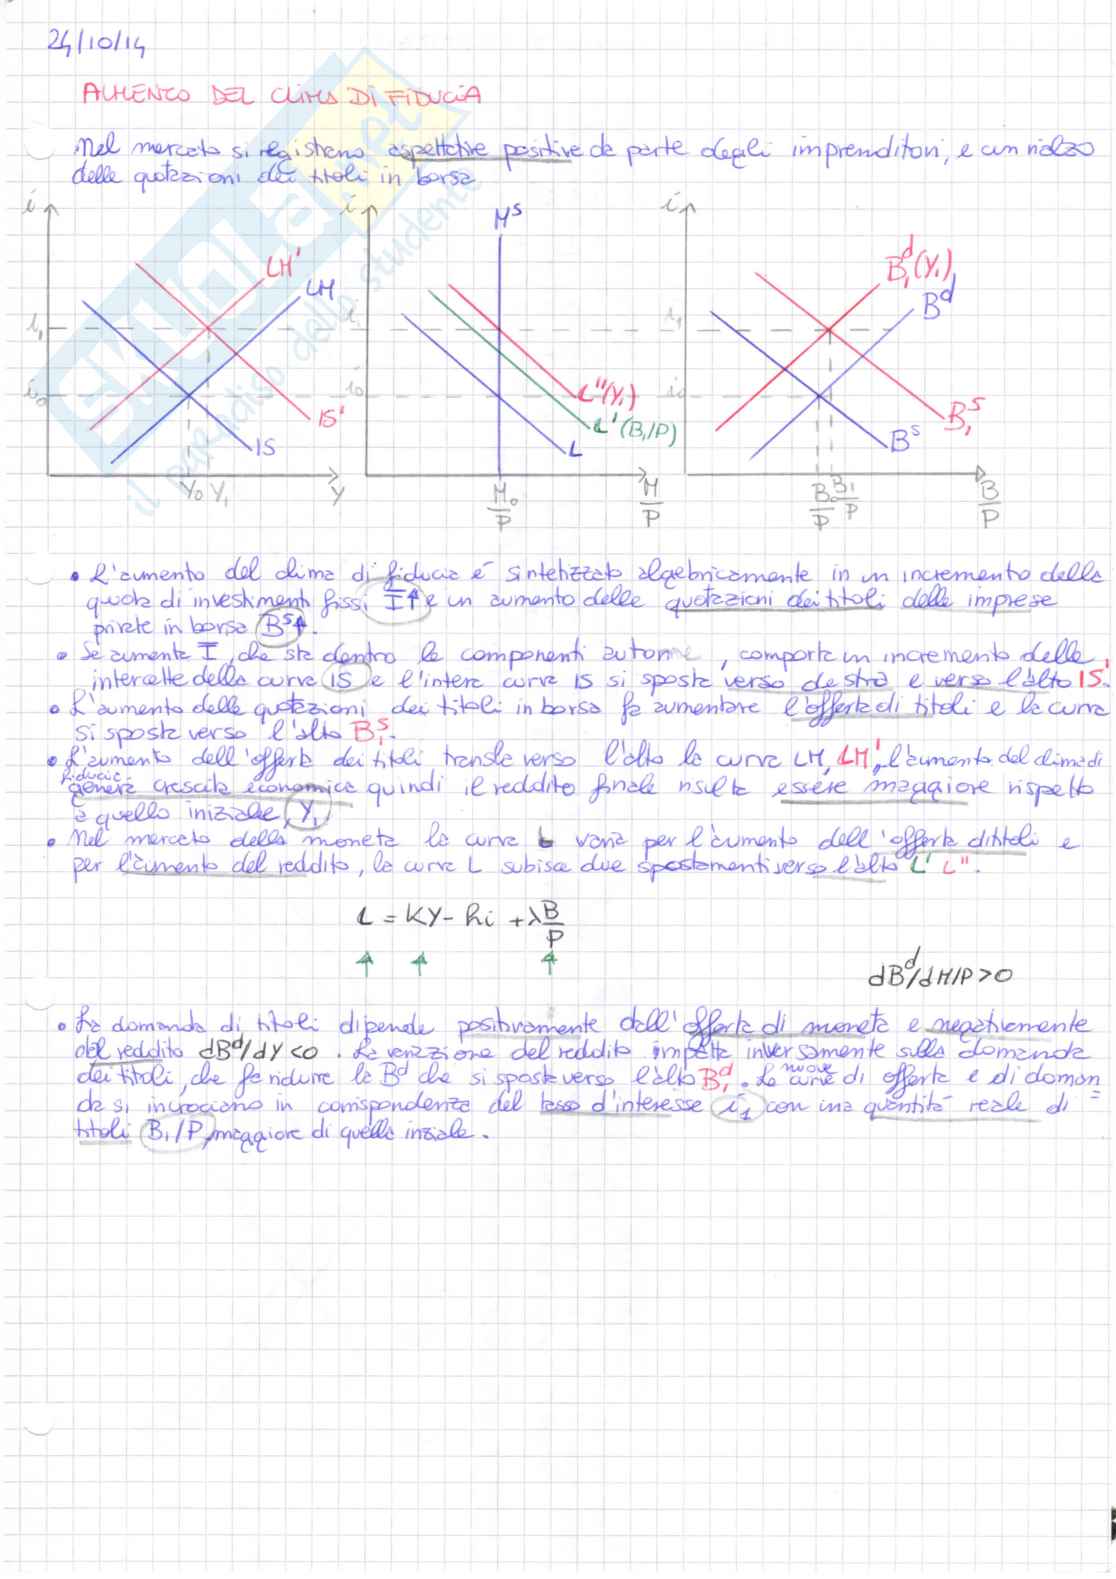 24/10/14
AUMENTO DEL CLIMA DI FIDUCIA
Nel mercato si registrano aspettative positive da parte degli imprenditori, e un rialzo
delle quotazioni dei titoli in borsa
i i M^S i
LM' B_1^d(Y_1)
LM B^d
i_1 i_1 i_1
i_0 i_0 L''(Y_1) i_0
IS' L'(B_1/P) B_1^S
IS L B^S
Y_0 Y_1 Y M_0/P M/P B_0/P B_1/P B/P
• L'aumento del clima di fiducia é sintetizzato algebricamente in un incremento della
quota di investimenti fissi I↑ e un aumento delle quotazioni dei titoli delle imprese
private in borsa B^S↑.
• Se aumenta I, che sta dentro le componenti autonome, comporta un incremento delle
intercette della curva IS e l'intera curva IS si sposta verso destra e verso l'alto IS'.
• L'aumento delle quotazioni dei titoli in borsa fa aumentare l'offerta di titoli e la curva
si sposta verso l'alto B_1^S.
• L'aumento dell'offerta dei titoli trasla verso l'alto la curva LM, LM', l'aumento del clima di
fiducia
genera crescita economica quindi il reddito finale risulta essere maggiore rispetto
a quello iniziale, Y_1
• Nel mercato della moneta la curva L varia per l'aumento dell'offerta di titoli e
per l'aumento del reddito, la curva L subisce due spostamenti verso l'alto L' L''.
L = KY - hi + λB/P
↑ ↑ ↑
dB^d/dM/P > 0
• La domanda di titoli dipende positivamente dall'offerta di moneta e negativamente
dal reddito dB^d/dY<0. La variazione del reddito impatta inversamente sulla domanda
dei titoli, che fa ridurre la B^d che si sposta verso l'alto B_1^d. Le nuove curve di offerta e di doman=
da si incrociano in corrispondenza del tasso d'interesse i_1 con una quantità reale di
titoli B_1/P, maggiore di quella iniziale.
STUDIA.net
il paradiso dello studente